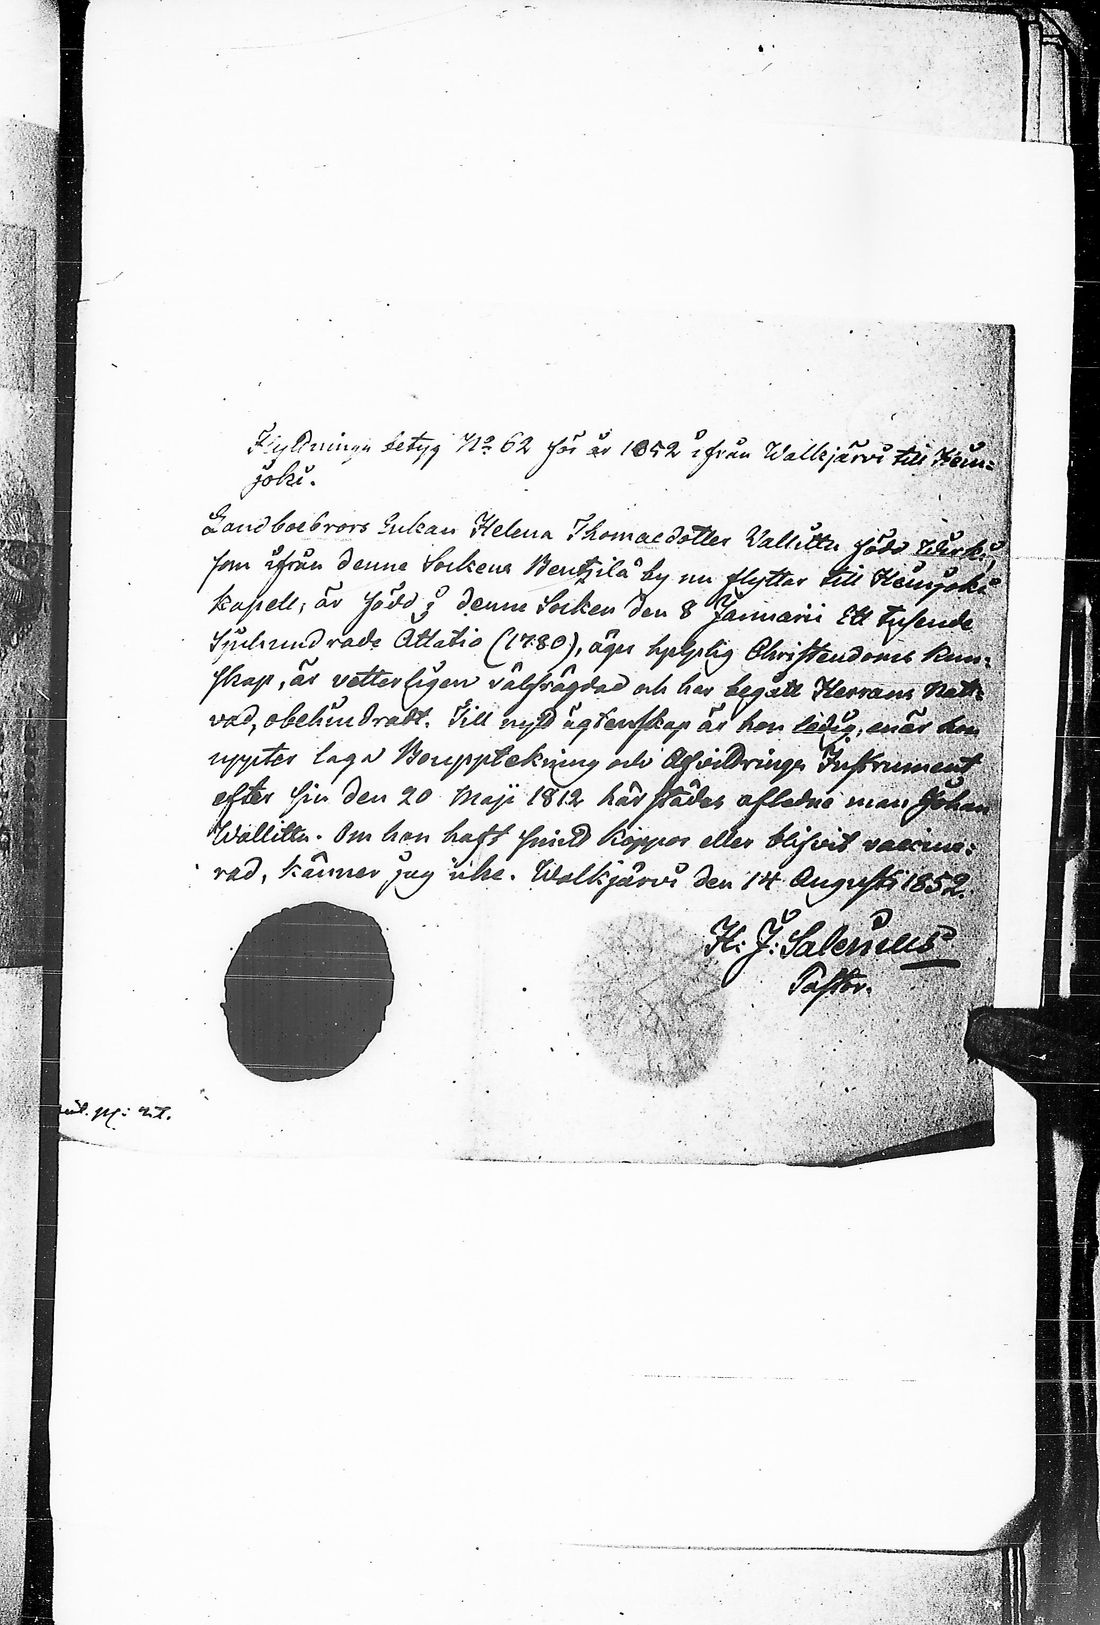 Flyttnings betyg No 62 för år 1852 ifrån Walkjärvi till Hein=
joki.
Landboebrors Enkan Helena Thomaedotter Wallittu född
som ifrån denne Sockens Bentzilä by nu flyttar till Heinjoki
kapell, är född i denne Socken den 8 Januarii Ett tusende
Sjuhundrade Åttatio (1780), äger hjelplig Christendoms kun=
skap, är vetterligen välfrägdad och har begått Herrans Natt=
vard, obehindradt. Till nytt ägtenskap är hon ledig, enär hon
uppter laga Bouppteckning och Afvittrings Instrument
efter sin den 20 Maji 1812 härstädes afledne man Johan
Wallittu. Om hon haft smitt koppor eller blifvit vaccine=
rad, känner jag icke. Walkjärvi den 14 Augusti 1852.
H: J: Salenius
Pastor.